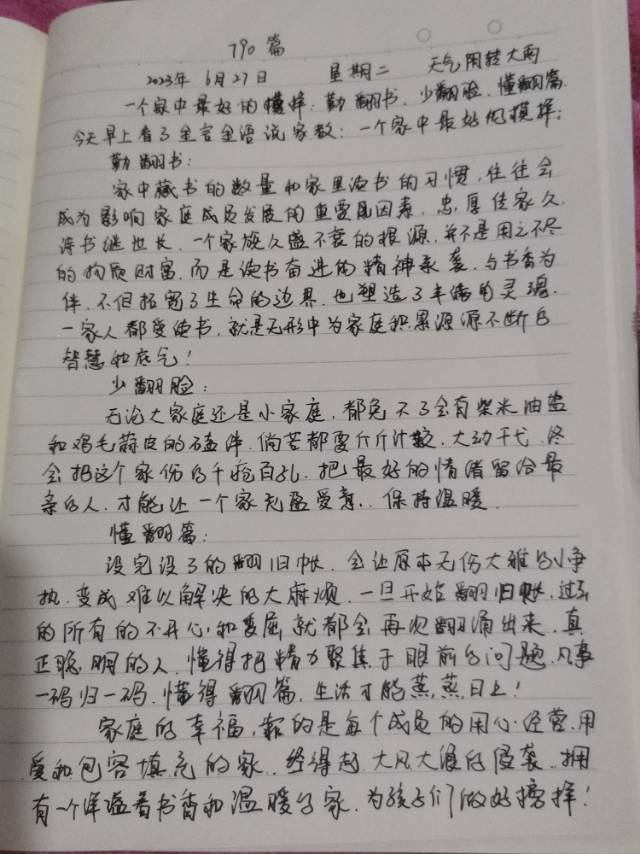 790篇
2023年6月27日 星期二 天气阴转大雨
一个家中最好的模样:勤翻书、少翻脸、懂翻篇.
今天早上看了金言金语说家教:一个家中最好的模样:
勤翻书:
家中藏书的数量和家里读书的习惯,往往会
成为影响家庭成员发展的重要因素,忠厚传家久,
诗书继世长,一个家族久盛不衰的根源,并不是用之不尽
的物质财富,而是读书奋进的精神承袭,与书香为
伴,不但拓宽了生命的边界,也塑造了丰满的灵魂.
一家人都爱读书,就是无形中为家庭积累源源不断的
智慧和底气!
少翻脸:
无论大家庭还是小家庭,都免不了会有柴米油盐
和鸡毛蒜皮的磕绊,倘若都要斤斤计较,大动干戈,终
会把这个家伤的千疮百孔,把最好的情绪留给最
亲的人,才能让一个家充盈爱意,保持温暖.
懂翻篇:
没完没了的翻旧帐,会让原本无伤大雅的小争
执,变成难以解决的大麻烦,一旦开始翻旧帐,过去
的所有的不开心和委屈,就都会再次翻涌出来,真
正聪明的人,懂得把精力聚焦于眼前的问题,凡事
一码归一码,懂得翻篇,生活才能蒸蒸日上!
家庭的幸福,靠的是每个成员的用心经营,用
爱和包容填充的家,经得起大风大浪的侵袭,拥
有一个洋溢着书香和温暖的家,为孩子们做好榜样!